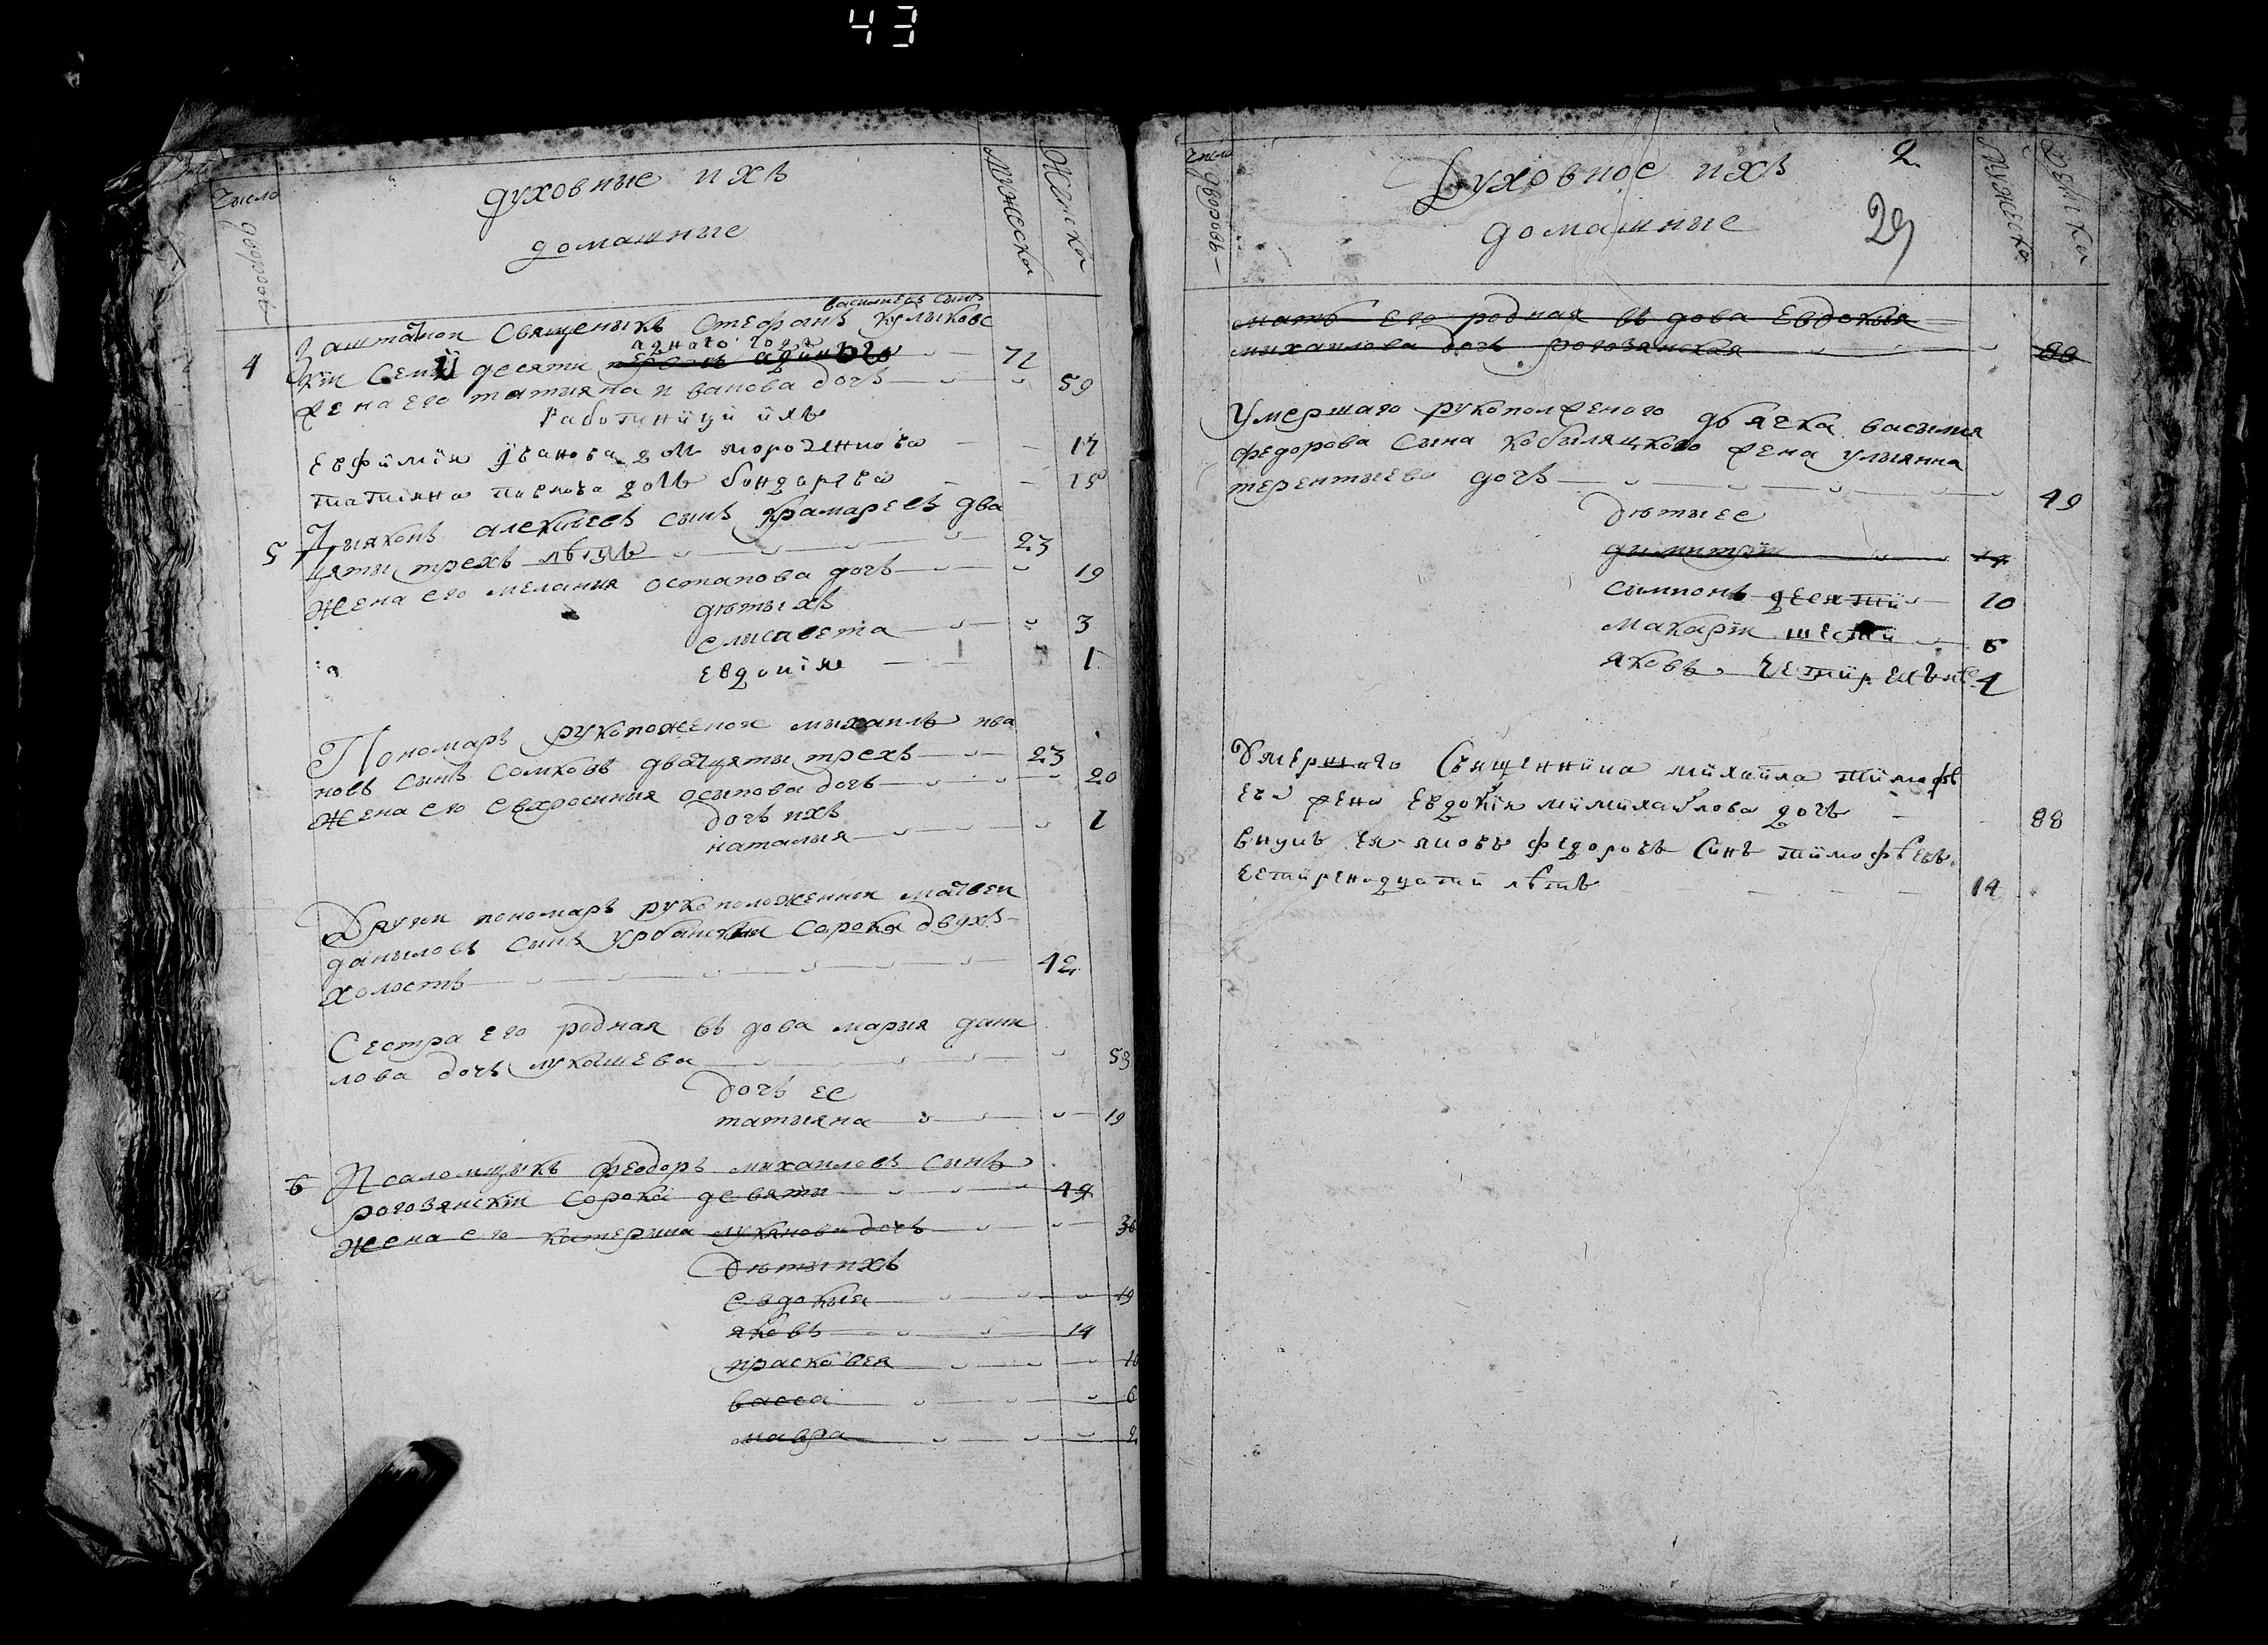 43
Число дворовъ
духовные ихъ
домашные
Мужеска
Женска
васильевъ сынъ
4 Заштатной Священыкъ Стефанъ Кулыковс
аднаго года
кїи Семи десяти 71
Жена его татияна иванова дочъ 59
Работницы ихъ
Евфимїя Иванова дочь 17
татїяна дочь бондарева 15
5 Дияконъ алексѣевъ сынъ Крамаревъ два
цяты трехъ лѣтъ 23
Жена его мелания остапова дочъ 19
дѣты ихъ
елисавета 3
Евдокїя 1
Пономаръ рукоположеной михаилъ ива
новъ Сынъ Сомковъ двацяты трехъ 23
Жена его евхросиния осипова дочъ 20
дочъ ихъ
наталия 1
Други пономаръ рукоположенной матвеи
даниловъ Сынъ урбанскїи Сорока двухъ
холостъ 42
Сестра его родная въдова мария дани
лова дочъ лукашева 53
дочъ ее
татыяна 19
6 Псаломщыкъ феодоръ михаиловъ Сынъ
рогозянскїи Сорока девяти 49
Жена его катерина лукянова дочъ 36
дѣты ихъ
евдокыя 19
яковъ 14
прасковея 10
васса 6
мавра 2
Число дворовъ
Духовное ихъ
2
домашные
29
Мужеска
Женска
мать его родная въдова Евдокыя
михаилова дочъ рогозянская 88
Умершаго рукоположеного дьячка василия
федорова Сына кобыляцкого жена улиянна
терентыева дочъ 49
дѣты ее
димитрїи 14
Симпонъ десяти 10
Макарїи шести 6
яковъ четирехъ лѣ 4
Умершого Священника михаила тимофѣ
ева жена Евдокїя михайлова дочъ 88
внукъ ея яковъ федоровъ Синъ тимофѣевъ
четиренадцати лѣтъ 14